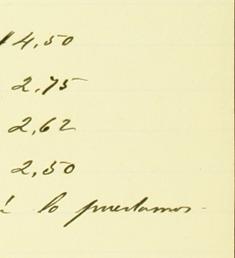 14,50
2,75
2,62
2,50
á lo prestamos